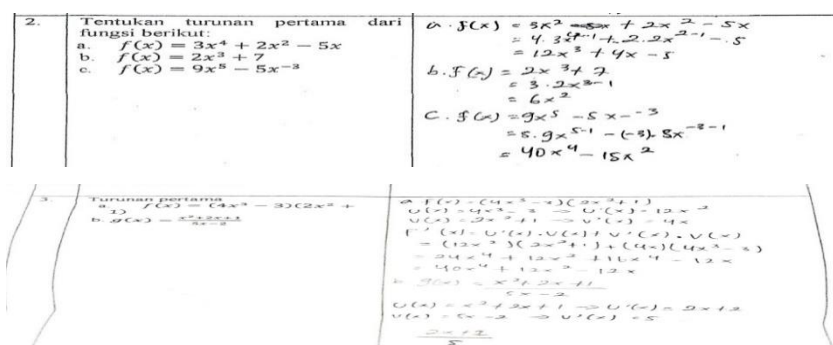 2.
Tentukan turunan pertama dari
fungsi berikut:
a. f(x) = 3x⁴ + 2x² − 5x
b. f(x) = 2x³ + 7
c. f(x) = 9x⁵ − 5x⁻³
a. f(x) = 3x² + 2x² − 5x
= 4.3x⁴⁻¹ + 2.2x²⁻¹ − 5
= 12x³ + 4x − 5
b. f(x) = 2x³ + 7
= 3.2x³⁻¹
= 6x²
c. f(x) = 9x⁵ − 5x⁻³
= 5.9x⁵⁻¹ − (−3). 5x⁻³⁻¹
= 40x⁴ − 15x²
3.
Turunan pertama
a. f(x) = (4x³ − 3)(2x² +
1)
b. g(x) = x²+2x+1 / 5x−2
a. f(x) = (4x³ − 3)(2x² + 1)
u(x) = 4x³ − 3 → u'(x) = 12x²
v(x) = 2x² + 1 → v'(x) = 4x
f'(x) = u'(x).v(x) + v'(x).v(x)
= (12x²)(2x²+1) + (4x)(4x³−3)
= 24x⁴ + 12x² + 16x⁴ − 12x
= 40x⁴ + 12x² − 12x
b. g(x) = x² + 2x + 1 / 5x − 2
u(x) = x² + 2x + 1 → u'(x) = 2x + 2
v(x) = 5x − 2 → v'(x) = 5
2x + 2 / 5